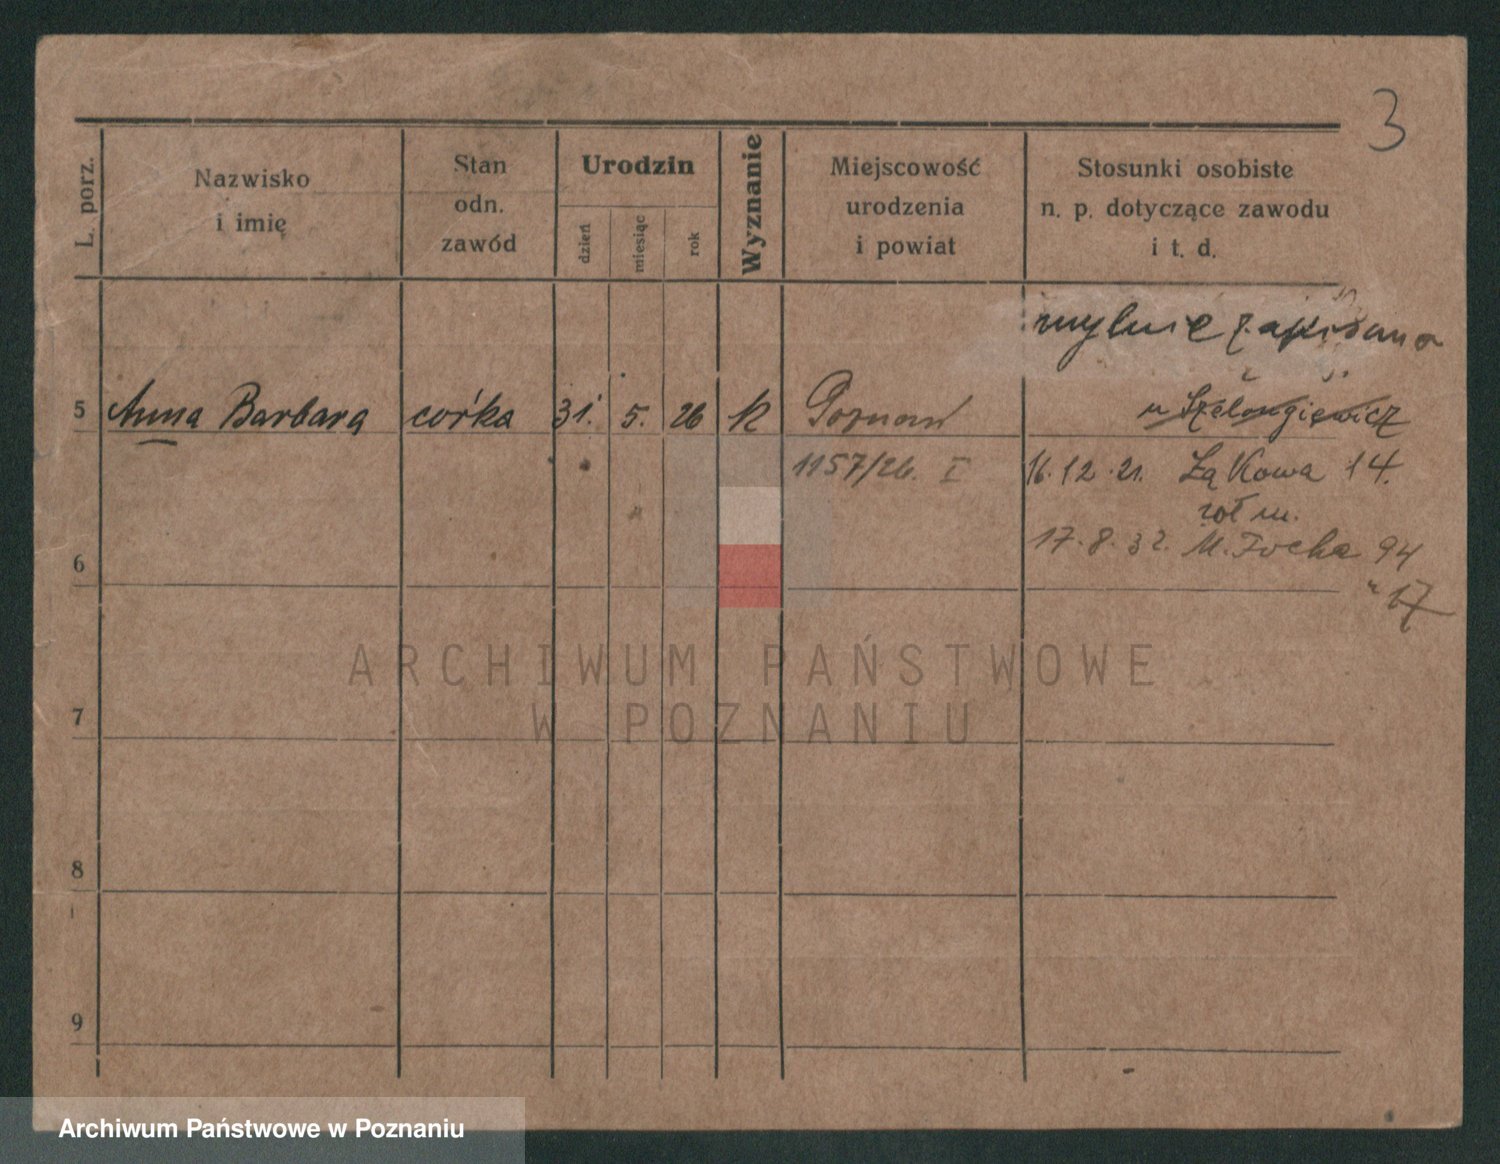 3
L. porz.
Nazwisko
i imię
Stan
odn.
zawód
Urodzin
dzień
miesiąc
rok
Wyznanie
Miejscowość
urodzenia
i powiat
Stosunki osobiste
n. p. dotyczące zawodu
i t. d.
mylnie zapisana
5 Anna Barbara córka 31. 5. 26 k Poznań u Szelongiewicz
1157/26. I 16.12.21. Łąkowa 14.
17.8.32. M. Focha 94
6
" 17
ARCHIWUM PAŃSTWOWE
W POZNANIU
7
8
9
Archiwum Państwowe w Poznaniu